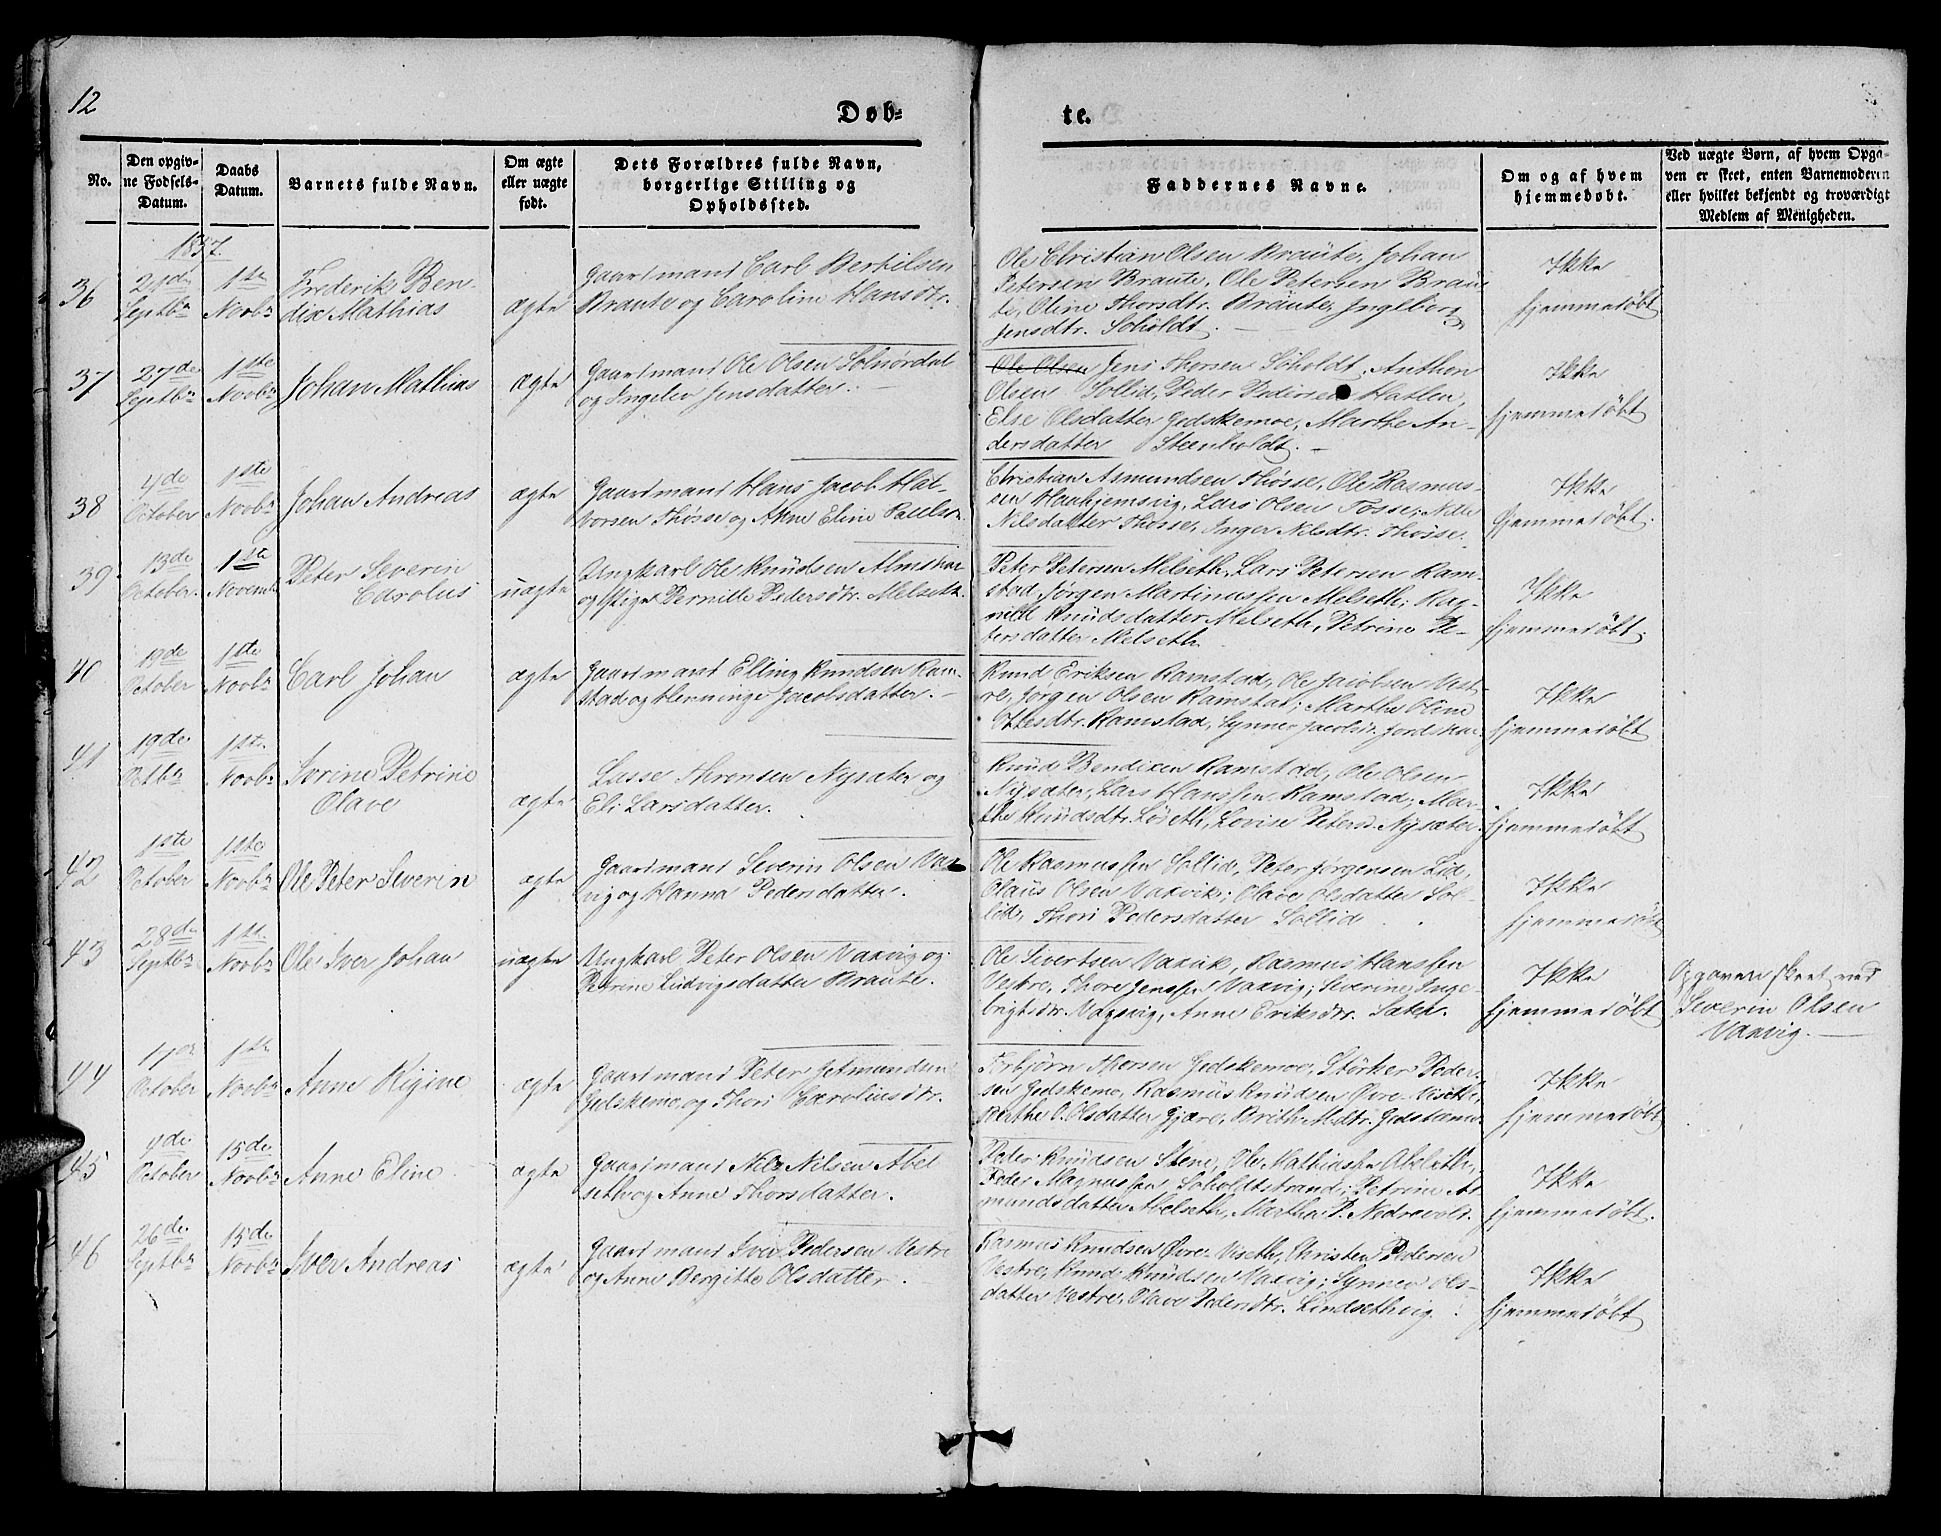 12
Døb-
te.
No.
Den opgiv-
ne Fødsels-
Datum.
Daabs
Datum.
Barnets fulde Navn.
Om ægte
eller uægte
født.
Dets Forældres fulde Navn,
borgerlige Stilling og
Opholdssted.
Faddernes Navne.
Om og af hvem
hjemmedøbt.
Ved uægte Børn, af hvem Opga-
ven er skeet, enten Barnemoderen
eller hvilket bekjendt og troværdigt
Medlem af Menigheden.
1857.
36
Septbr
1ste
Novbr
Frederik Ben-
dix Mathias
ægte
Gaardmand Carl Bertilsen
Braute og Caroline Hansdtr.
Ole Christian Olsen Braute, Johan
Petersen Braute, Ole Petersen Brau-
te, Oline Thorsdtr. Braute, Ingeborg
Jensdtr. Søholdt.
Ikke
hjemmedøbt
37
27de
Septbr
1ste
Novbr
Johan Mathias
ægte
Gaardmand Ole Olsen Solnørdal
og Ingelev Jensdatter.
Ole Olsen Jens Thorsen Søholdt, Anthon
Olsen Sollid, Peder Pedersen Hatlen,
Else Olsdatter Gidskemoe, Marthe An-
dersdatter Steenholdt.
Ikke
hjemmedøbt
38
4de
October
1ste
Novbr
Johan Andreas
ægte
Gaardmand Hans Jacob Hal-
vorsen Thøsse og Anne Eline Paulsd.
Christian Asmundsen Thøsse, Ole Rasmus-
sen Haahjemsvig, Lars Olsen Tøsse, Nille
Nilsdatter Thøsse, Inger Nilsdtr. Thøsse.
Ikke
hjemmedøbt.
39
13de
October.
1ste
Novemb
Peter Severin
Carolus
uægte
Ungkarl Ole Knudsen
og Pige Pernille Pedersdtr. Melseth.
Peter Petersen Melseth, Lars Petersen Ram-
stad, Jørgen Martinussen Melseth; Rag-
nild Knudsdatter Melseth, Petrine Pe-
tersdatter Melseth.
Ikke
hjemmedøbt.
40
19de
October
1ste
Novbr
Carl Johan
ægte
Gaardmand Elling Knudsen Ram-
stad og Henninge Jacobsdatter.
Knud Eriksen Ramstad, Ole Jacobsen Vest-
re, Jørgen Olsen Ramstad; Marthe Oline
Ottesdtr. Ramstad, Synnev Jacobsd.
Ikke
hjemmedøbt
41
19de
Octbr
1ste
Novbr
Serine Petrine
Olave
ægte
Lasse Nysæter og
Eli Larsdatter.
Knud Bendixen Ramstad, Ole Olsen
Nysæter, Lars Hanssen Ramstad; Mar-
the Knudsdtr. Løseth, Lovise Petersd. Nysæter.
Ikke
hjemmedøbt
42
1ste
October
1ste
Novbr
Ole Peter Severin
ægte
Gaardmand Severin Olsen Vax-
vig og Hanna Pedersdatter.
Ole Rasmussen Sollid, Peter Jørgensen Lid,
Olaus Olsen Vaxvik; Olave Olsdatter Sol-
lid, Thori Pedersdatter Sollid
Ikke
hjemmedøbt
43
28de
Septbr
1ste
Novbr
Ole Iver Johan
uægte
Ungkarl Peter Olsen Vaxvig og
Petrine Ludvigsdatter Braute.
Ole Sivertsen Vaxvik, Rasmus Hanssen
Vestre, Thore Jenssen Vaxvig; Severine Inge-
brigtsdtr. Vagsvig, Anne Eriksdtr. Sæter.
Ikke
hjemmedøbt
Opgaven skeet ved
Severin Olsen
Vaxvig.
44
October
1ste
Novbr
Anne Rigine
ægte
Gaardmand Peter
Gidskemo og Thori Caroliusdtr.
Thorsen Gidskemoe, Størker Peder-
sen Gidskemo, Rasmus Knudsen Øvre-Viseth,
Berthe O. Olsdatter Gjære, Brithe
Ikke
hjemmedøbt
45
4de
October
15de
Novbr
Anne Eline
ægte
Gaardmand Nils Nilsen Abel-
seth og Anne Thorsdatter.
Peder Knudsen Stene, Ole Mathiassen Abelseth,
Peder Magnussen Søholdtstrand; Petrine As-
mundsdatter Abelseth, Marthe P. Nedrevold.
Ikke
hjemmedøbt.
46
26de
Septbr
15de
Novbr
Iver Andreas
ægte
Gaardmand Iver Pedersen Vestre
og Anne Bergitte Olsdatter.
Rasmus Knudsen Øvre-Viseth, Christen Pedersen
Vestre, Knud Knudsen Vaxvig; Synnev Ols-
datter Vestre, Olave Pedersdtr. Lindsethvig.
Ikke
hjemmedøbt